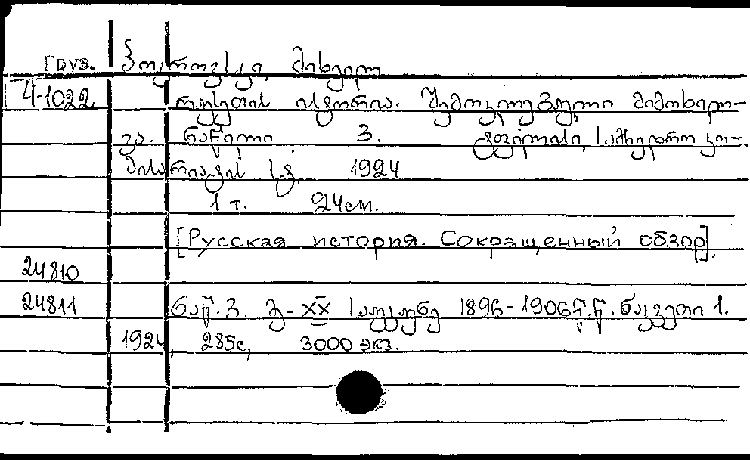 Груз. პოკროვსკი, მიხეილ
4-1022 რუსეთის ისტორია. შემოკლებული მიმოხილ-
ვა. ნაწილი 3. ტფილისი, სამხედრო კო-
მისარიატის სტ. 1924
1 т. 24 см.
[Русская история. Сокращенный обзор].
24810
24811 ნაწ. 3. მე-XX საუკუნე 1896-1906 წ.წ. ნაკვეთი 1.
1924, 285с, 3000 экз.